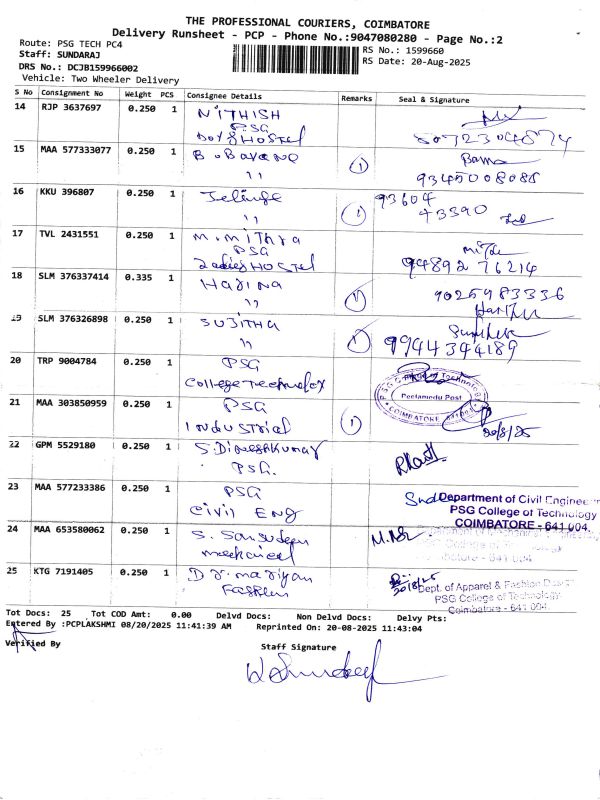 THE PROFESSIONAL COURIERS, COIMBATORE
Delivery Runsheet - PCP - Phone No.:9047080280 - Page No.:2
Route: PSG TECH PC4
RS No.: 1599660
Staff: SUNDARAJ
RS Date: 20-Aug-2025
DRS No.: DCJB159966002
Vehicle: Two Wheeler Delivery
S No Consignment No Weight PCS Consignee Details Remarks Seal & Signature
14 RJP 3637697 0.250 1 NITHISH
PSG
Boys HOSTEL
8072304874
15 MAA 577333077 0.250 1
" 1
9345008088
16 KKU 396807 0.250 1
" 1
93604
43390
17 TVL 2431551 0.250 1 M. Mithra
PSG
Ladies HOSTEL
94892 76214
18 SLM 376337414 0.335 1 HARINA
" 1
9025983336
19 SLM 376326898 0.250 1 SUJITHA
" 1
9944344189
20 TRP 9004784 0.250 1 PSG
College Technology
Peelamedu Post
COIMBATORE
21 MAA 303850959 0.250 1 PSG
Industrial 1
20/8/25
22 GPM 5529180 0.250 1 S. Dineshkumar
PSG.
23 MAA 577233386 0.250 1 PSG
CIVIL ENG
Department of Civil Engineer
PSG College of Technology
COIMBATORE - 641 004.
24 MAA 653580062 0.250 1 S.
mechanical
25 KTG 7191405 0.250 1
Fashion
20/8/25
Dept. of Apparel & Fashion Design
PSG College of Technology
Coimbatore - 641 004.
Tot Docs: 25 Tot COD Amt: 0.00 Delvd Docs: Non Delvd Docs: Delvy Pts:
Entered By :PCPLAKSHMI 08/20/2025 11:41:39 AM Reprinted On: 20-08-2025 11:43:04
Verified By
Staff Signature